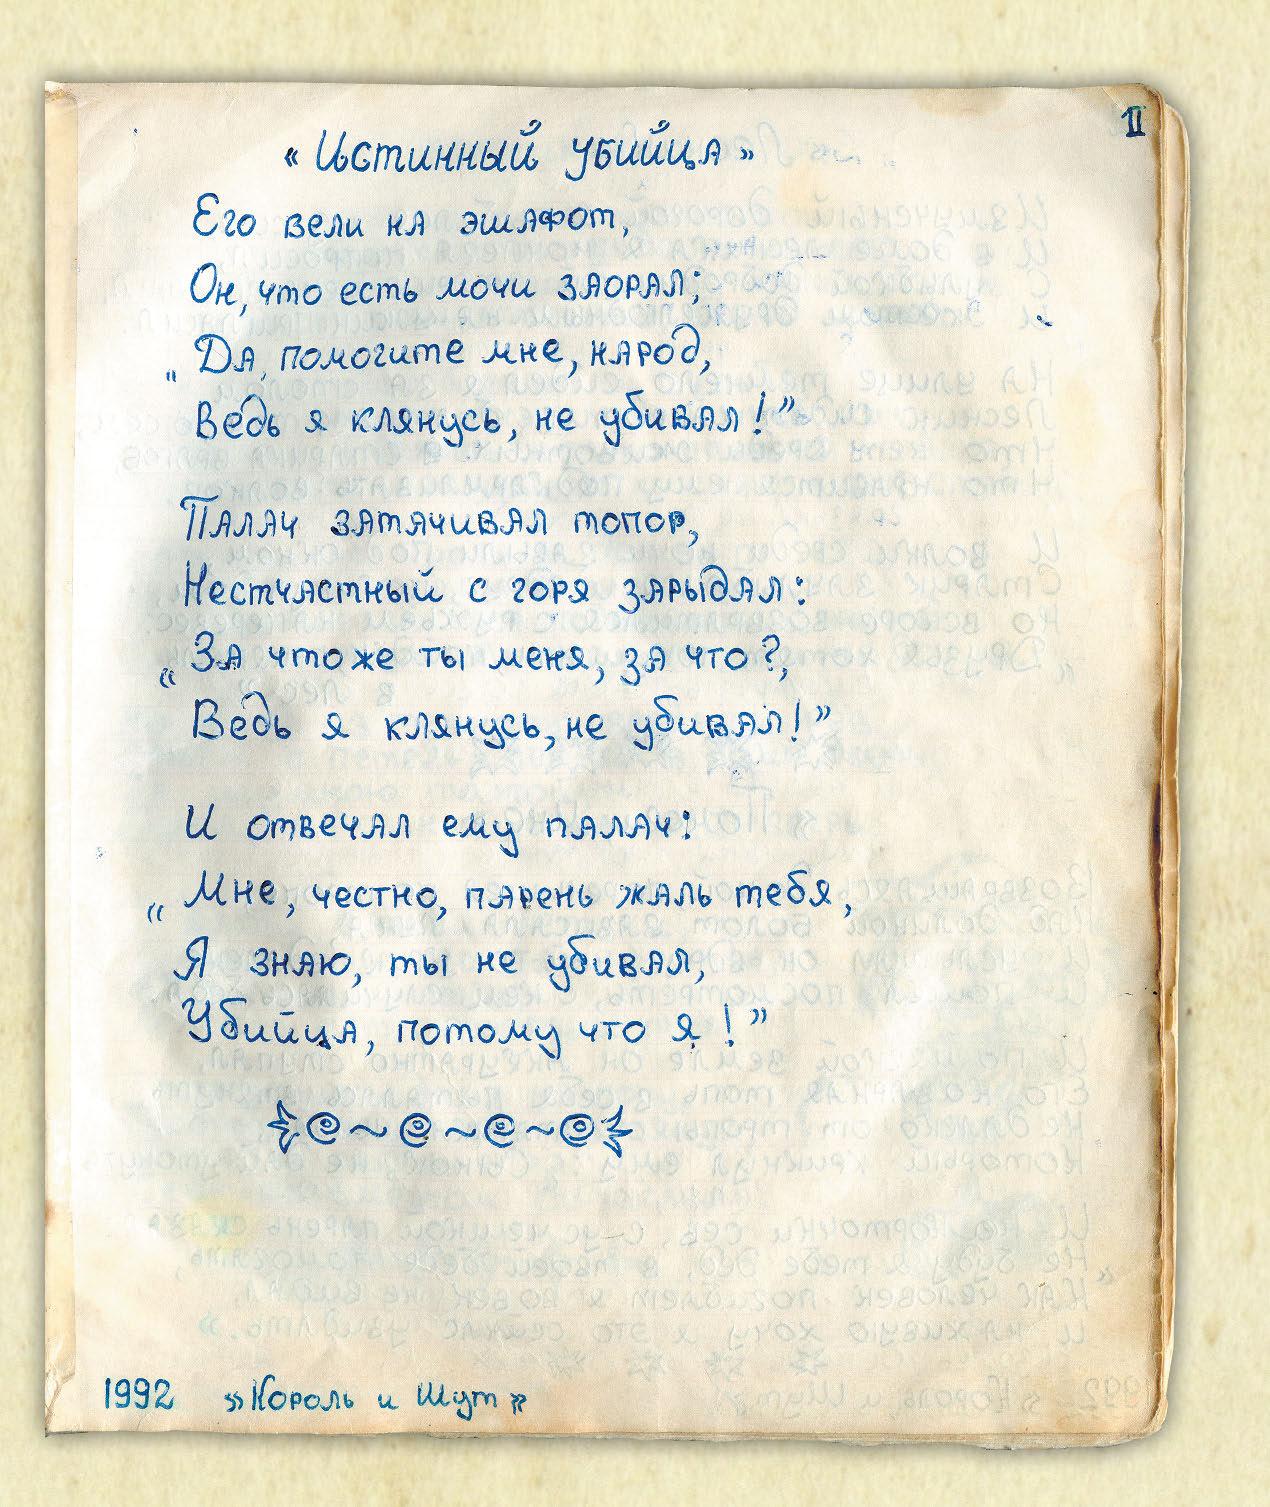 II
« Истинный убийца »
Его вели на эшафот,
Он, что есть мочи заорал;
„ Да, помогите мне, народ,
Ведь я клянусь, не убивал! ”
Палач затачивал топор,
Нестчастный с горя зарыдал:
„ За что же ты меня, за что?,
Ведь я клянусь, не убивал! ”
И отвечал ему палач:
„ Мне, честно, парень жаль тебя,
Я знаю, ты не убивал,
Убийца, потому что я ! ”
1992 »Король и Шут»